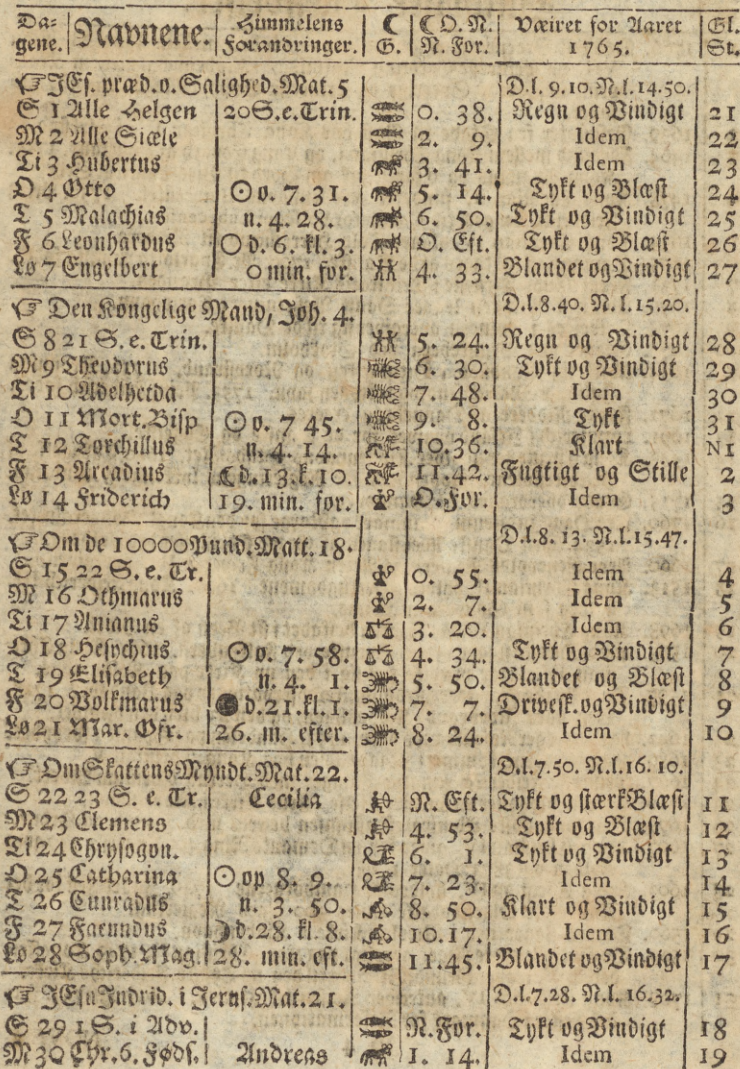 Da= gene. Navnene. Himmelens Forandringer. ☾ G. ☾ O. N. N. For. Væiret for Aaret 1765. Gl. St.
☞ JEs. præd. o. Salighed. Mat. 5 D. l. 9. 10. N. l. 14. 50.
S 1 Alle Helgen 20 S. e. Trin. 0. 38. Regn og Vindigt 21
M 2 Alle Siæle 2. 9. Idem 22
Ti 3 Hubertus 3. 41. Idem 23
O 4 Otto ☉ o. 7. 31. 5. 14. Tykt og Blæst 24
T 5 Malachias n. 4. 28. 6. 50. Tykt og Vindigt 25
F 6 Leonhardus ○ d. 6. kl. 3. O. Eft. Tykt og Blæst 26
Lø 7 Engelbert 0 min. for. 4. 33. Blandet og Vindigt 27
☞ Den Kongelige Mand, Joh. 4. D. l. 8. 40. N. l. 15. 20.
S 8 21 S. e. Trin. 5. 24. Regn og Vindigt 28
M 9 Theodorus 6. 30. Tykt og Vindigt 29
Ti 10 Adelheida 7. 48. Idem 30
O 11 Mort. Bisp ☉ o. 7 45. 9. 8. Tykt 31
T 12 Torchillus n. 4. 14. 10. 36. Klart N1
F 13 Arcadius ☾ d. 13. k. 10. 11. 42. Fugtigt og Stille 2
Lø 14 Friderich 19. min. for. O. For. Idem 3
☞ Om de 10000 Pund. Matt. 18. D. l. 8. 13. N. l. 15. 47.
S 15 22 S. e. Tr. 0. 55. Idem 4
M 16 Othmarus 2. 7. Idem 5
Ti 17 Anianus 3. 20. Idem 6
O 18 Hesychius ☉ o. 7. 58. 4. 34. Tykt og Vindigt 7
T 19 Elisabeth n. 4. 1. 5. 50. Blandet og Blæst 8
F 20 Volkmarus ● d. 21. kl. 1. 7. 7. Drivesk. og Vindigt 9
Lø 21 Mar. Ofr. 26. m. efter. 8. 24. Idem 10
☞ Om Skattens Myndt. Mat. 22. D. l. 7. 50. N. l. 16. 10.
S 22 23 S. e. Tr. Cecilia N. Eft. Tykt og stærk Blæst 11
M 23 Clemens 4. 53. Tykt og Blæst 12
Ti 24 Chrysogon. 6. 1. Tykt og Vindigt 13
O 25 Catharina ☉ op 8. 9. 7. 23. Idem 14
T 26 Cunradus n. 3. 50. 8. 50. Klart og Vindigt 15
F 27 Facundus ☽ d. 28. kl. 8. 10. 17. Idem 16
Lø 28 Soph. Mag. 28. min. eft. 11. 45. Blandet og Vindigt 17
☞ JEsu Indrid. i Jerus. Mat. 21. D. l. 7. 28. N. l. 16. 32.
S 29 1. S. i Adv. N. For. Tykt og Vindigt 18
M 30 Chr. 6. Føds. Andreas 1. 14. Idem 19